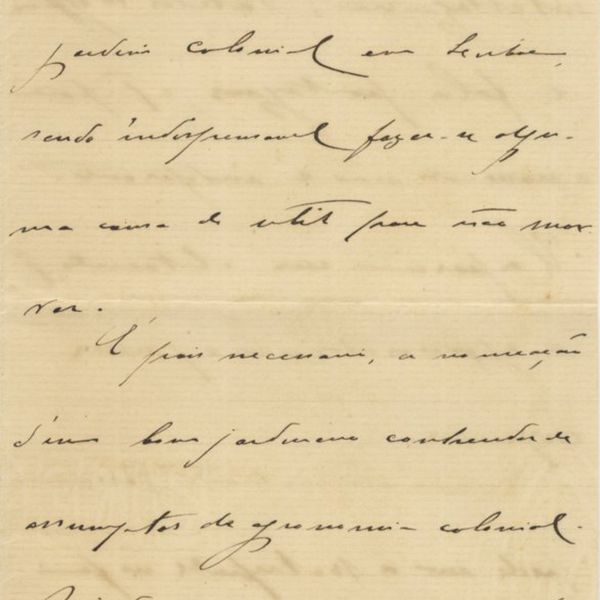 jardim colonial em Lisboa,
sendo indispensavel fazer-se algu-
ma cousa de util para não mor-
rer.
É pois necessario, a nomeação
d'um bom jardineiro conhecedor de
assumptos de agronomia colonial.